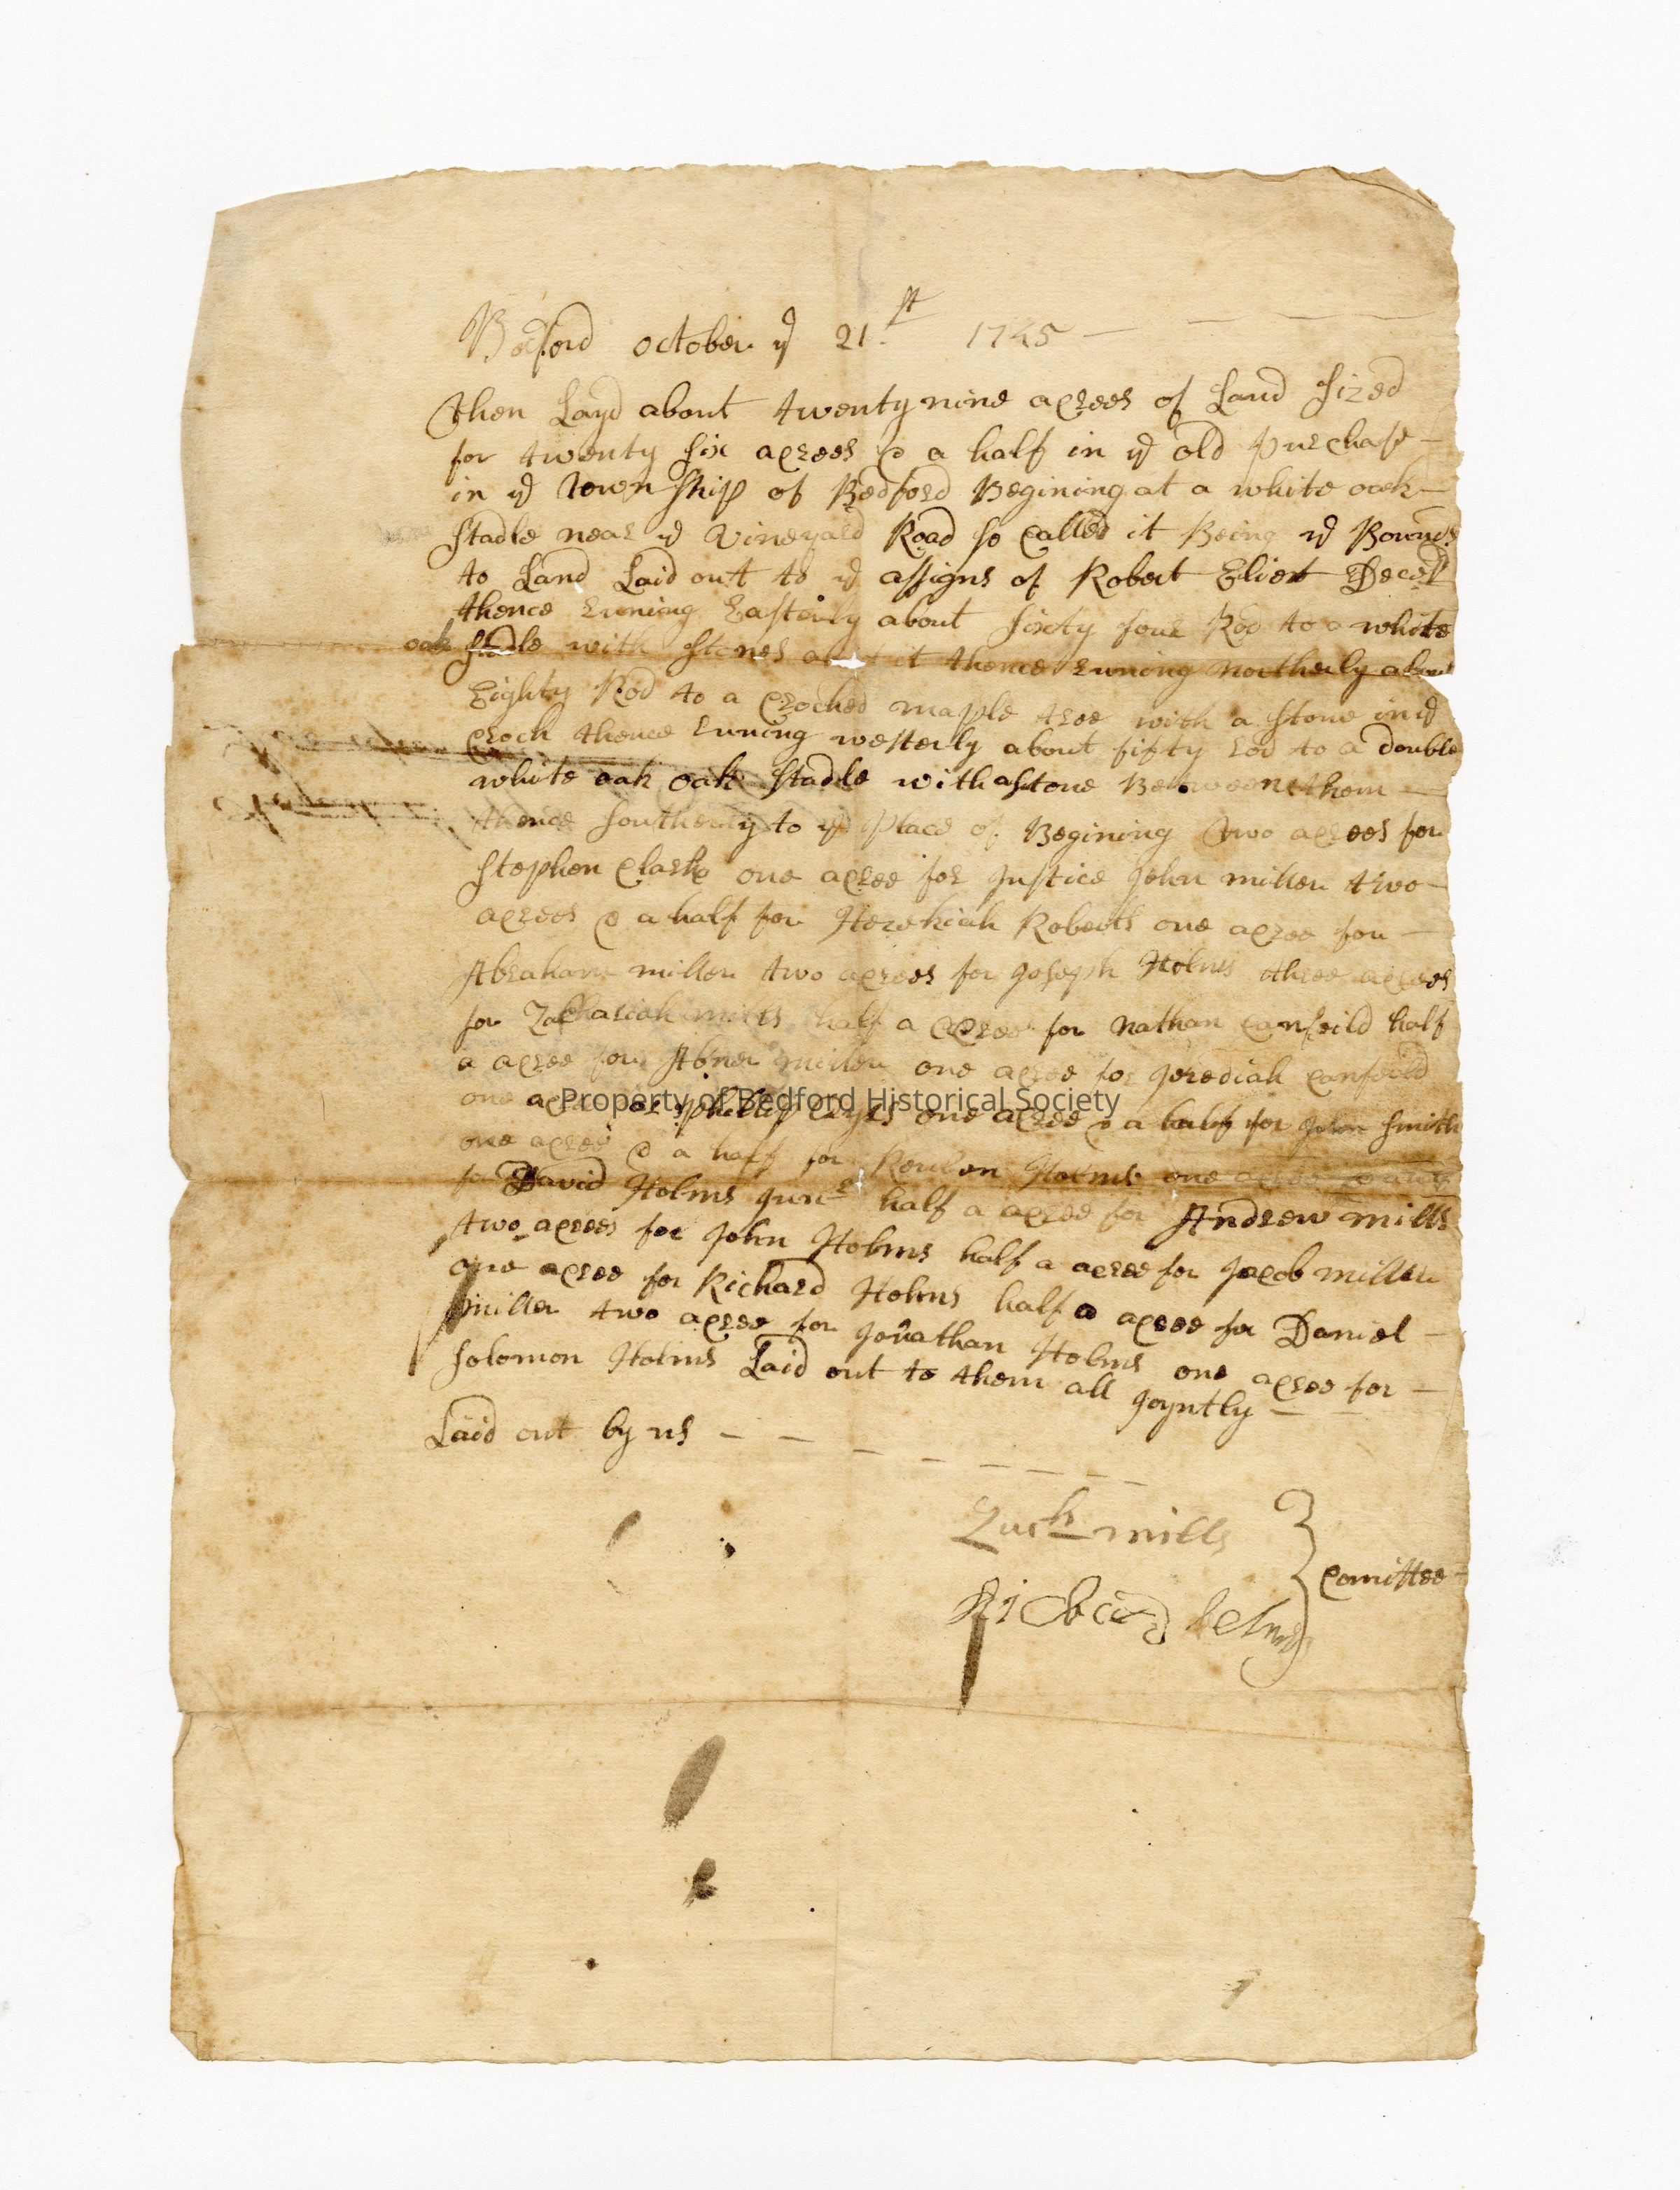 Bedford october ye 21st 1745
Then Layd about twenty nine acrees of Land Sized
for twenty six acrees & a half in ye old purchase
in ye Town Ship of Bedford Begining at a white oak
Stadle near ye Vineyard Road so Called it Being ye Bounds
to Land Laid out to ye assigns of Robert Eliot Decesd
thence runing Easterly about sixty four Rod to a white
oak Stadle with Stones about it thence runing northerly about
Eighty Rod to a Crocked maple tree with a Stone in ye
Croch thence runing westerly about fifty rod to a double
white oak oak Stadle with a Stone Betweene them
thence Southerly to ye place of Begining Two acrees for
Stephen Clark one acree for Justice John miller two
acrees & a half for Hezekiah Roberts one acree for
Abraham miller two acrees for Joseph Holms three acrees
for Zachariah mills half a acree for Nathan Canfeild half
a acree for Abner miller one acree for Jerediah Canfeild
one acree for phillip one acree & a half for John Smith
one acree & a half for Reuben Holms one acree
for David Holms Junr half a acree for Andrew mills
two acrees for John Holms half a acree for Jacob miller
one acree for Richard Holms half a acree for Daniel
miller two acree for Jonathan Holms one acree for
Solomon Holms Laid out to them all Joyntly
Laid out by us
Zach mills
Richard holms
Comittee
Property of Bedford Historical Society